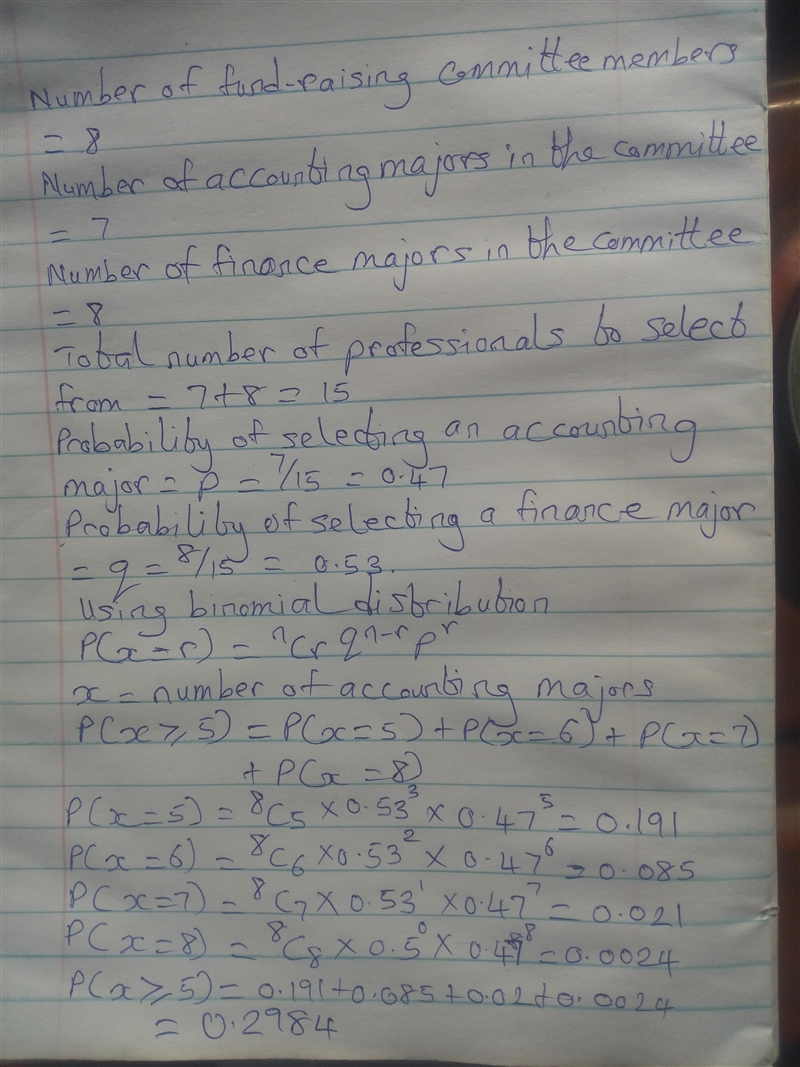 Number of fund-raising committee members
= 8
Number of accounting majors in the committee
= 7
Number of finance majors in the committee
= 8
Total number of professionals to select
from = 7+8 = 15
Probability of selecting an accounting
major = p = 7/15 = 0.47
Probability of selecting a finance major
= q = 8/15 = 0.53.
Using binomial distribution
P(x=r) = ⁿCr q^n-r p^r
x = number of accounting majors
P(x≥5) = P(x=5) + P(x=6) + P(x=7)
+ P(x=8)
P(x=5) = ⁸C₅ × 0.53³ × 0.47⁵ = 0.191
P(x=6) = ⁸C₆ × 0.53² × 0.47⁶ = 0.085
P(x=7) = ⁸C₇ × 0.53¹ × 0.47⁷ = 0.021
P(x=8) = ⁸C₈ × 0.5⁰ × 0.47⁸ = 0.0024
P(x≥5) = 0.191+0.085+0.02+0.0024
= 0.2984